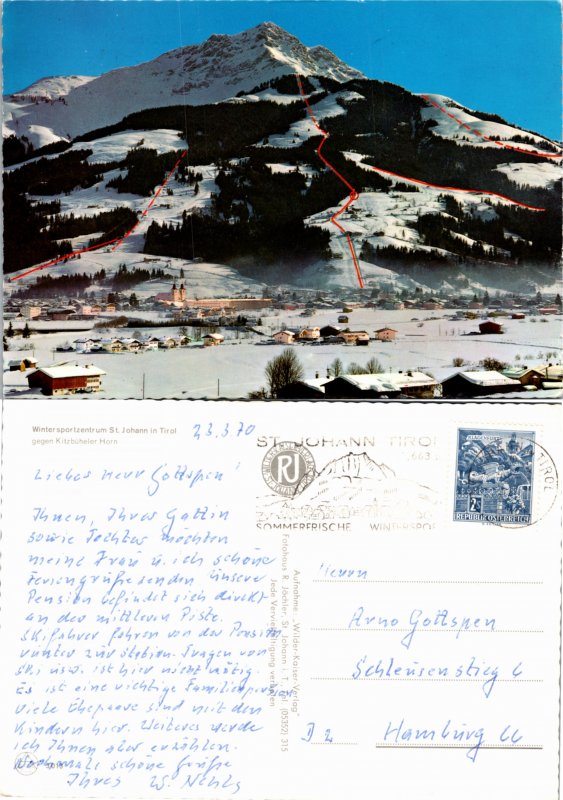 Wintersportzentrum St. Johann in Tirol
gegen Kitzbüheler Horn
23.3.70
Liebes Herr Gottspen!
Ihnen, Ihres Gattin
sowie Tochter möchten
meine Frau u. ich schöne
Feriengrüße senden. Unsere
Pension befindet sich direkt
an der mittleren Piste.
Skifahrer fahren von der Pension
runter zu den Skiern. Tragen von
Ski usw. ist hier nicht nötig.
Es ist eine richtige Familienpension
viele Ehepaare sind mit den
Kindern hier. Weiteres werde
ich Ihnen aber erzählen.
Nochmals schöne Grüße
Ihres W.
Aufnahme: „Wilder-Kaiser-Verlag"
Fotohaus R. Jöchler, St. Johann i. T., Tel. (05352) 315
Jede Vervielfältigung verboten
RJ
ST. JOHANN TIROL
SOMMERFRISCHE WINTERSPO
TIROL
REPUBLIK ÖSTERREICH
Herrn
Arno Gottspen
Schleusenstieg 6
D 2 Hamburg 66